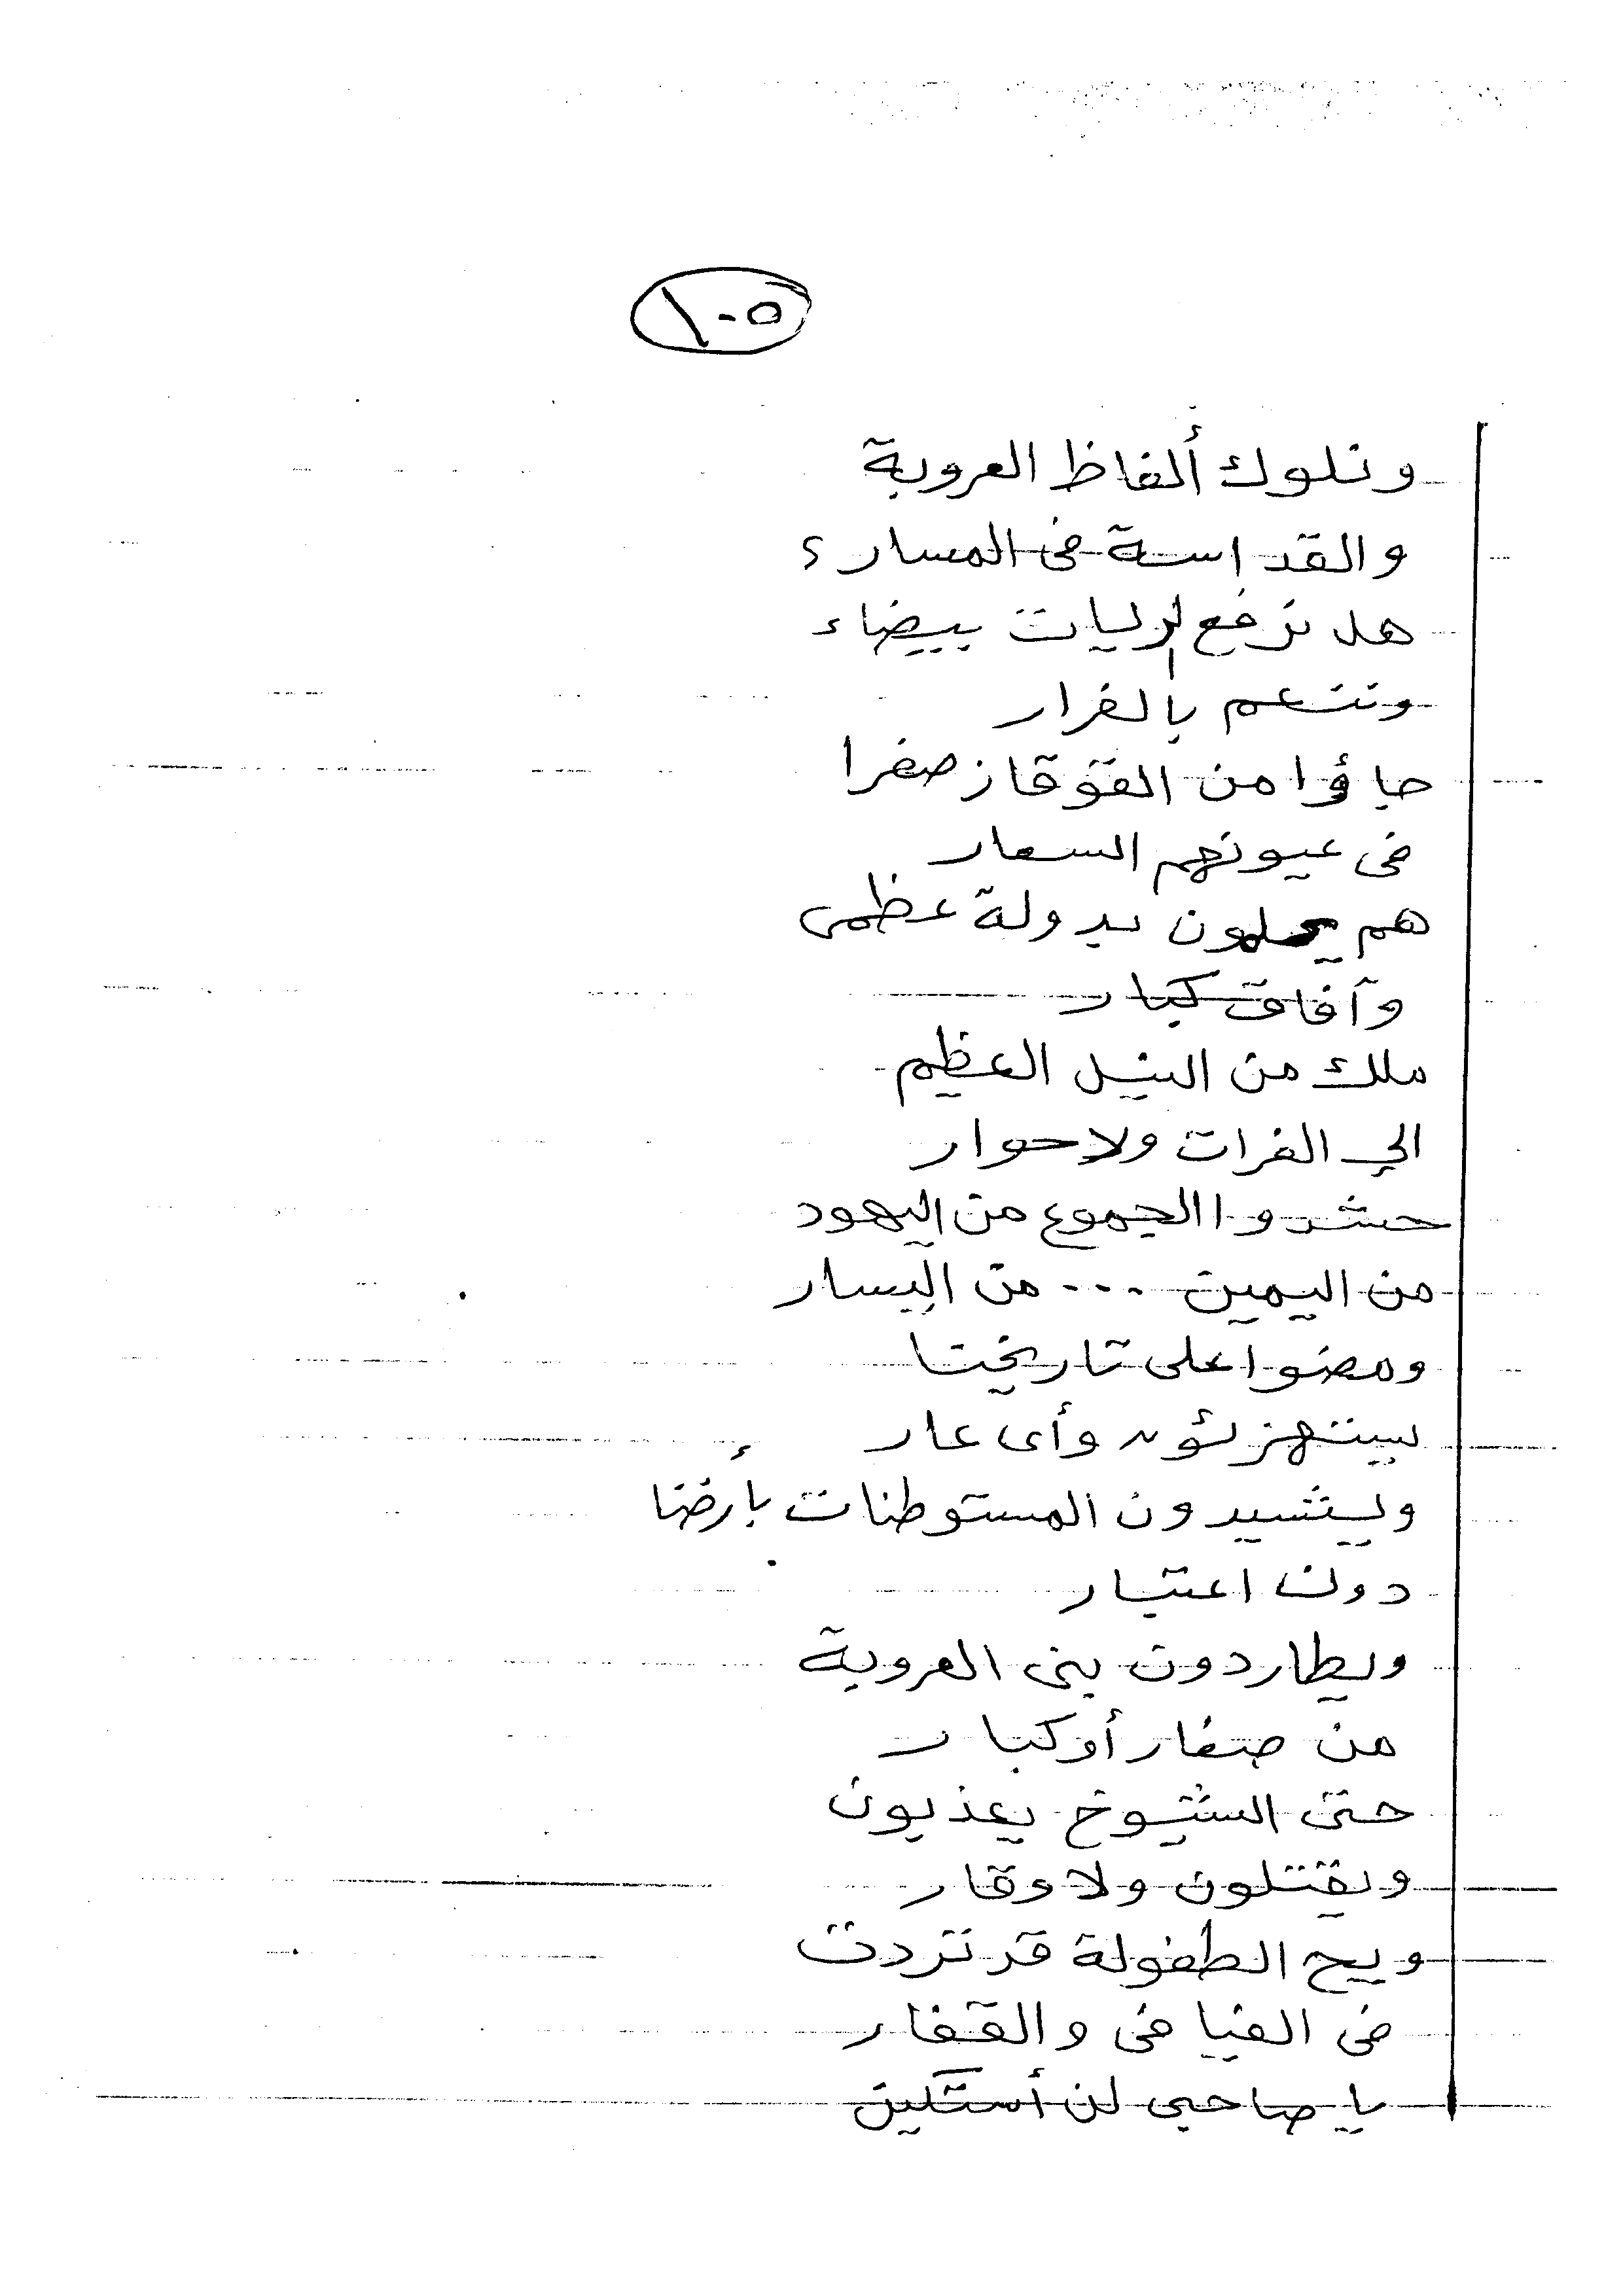 ١٠٥
وتلوك ألفاظ العروبة
والقداسة فى المسار؟
هل ترفع الرايات بيضاء
وتنعم بالفرار
جاؤا من القوقاز صفرا
فى عيونهم السعار
هم يحلمون بدولة عظمى
وآفاق كبار
ملك من النيل العظيم
الي الفرات ولا حوار
حشدوا الجموع من اليهود
من اليمين ... من اليسار
ومضوا على تاريخنا
يستهزئون وأى عار
ويشيدون المستوطنات بأرضنا
دون اعتبار
ويطاردون بنى العروبة
من صغار أو كبار
حتى الشيوخ يعذبون
ويقتلون ولا وقار
ويح الطفولة قد تردت
فى الفيافى والقفار
يا صاحبى لن أستكين